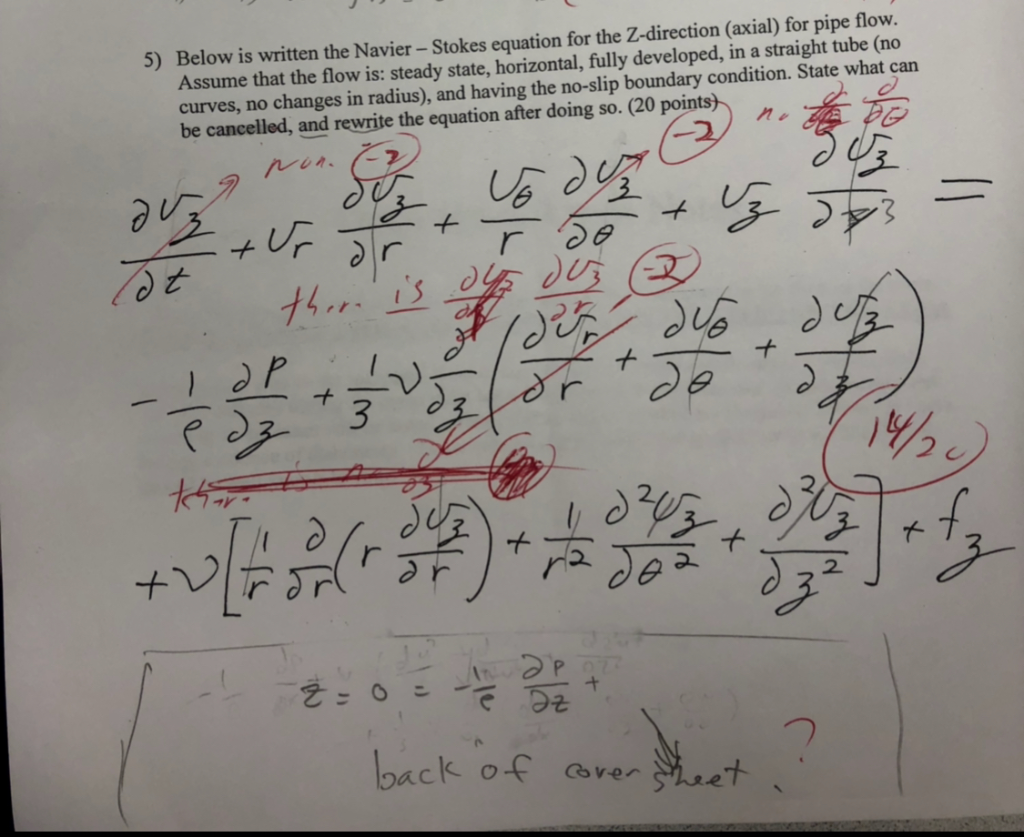 5) Below is written the Navier – Stokes equation for the Z-direction (axial) for pipe flow.
Assume that the flow is: steady state, horizontal, fully developed, in a straight tube (no
curves, no changes in radius), and having the no-slip boundary condition. State what can
be cancelled, and rewrite the equation after doing so. (20 points)
-2 -2 no ∂/∂θ
∂v_z/∂t + v_r ∂v_z/∂r + v_θ/r ∂v_z/∂θ + v_z ∂v_z/∂z =
there is ∂v_z/∂r -2
- 1/ρ ∂P/∂z + 1/3 ν ∂/∂z (∂v_r/∂r + ∂v_θ/∂θ + ∂v_z/∂z)
14/20
+ ν [1/r ∂/∂r (r ∂v_z/∂r) + 1/r² ∂²v_z/∂θ² + ∂²v_z/∂z²] + f_z
z = 0 = - 1/ρ ∂P/∂z +
back of cover sheet. ?